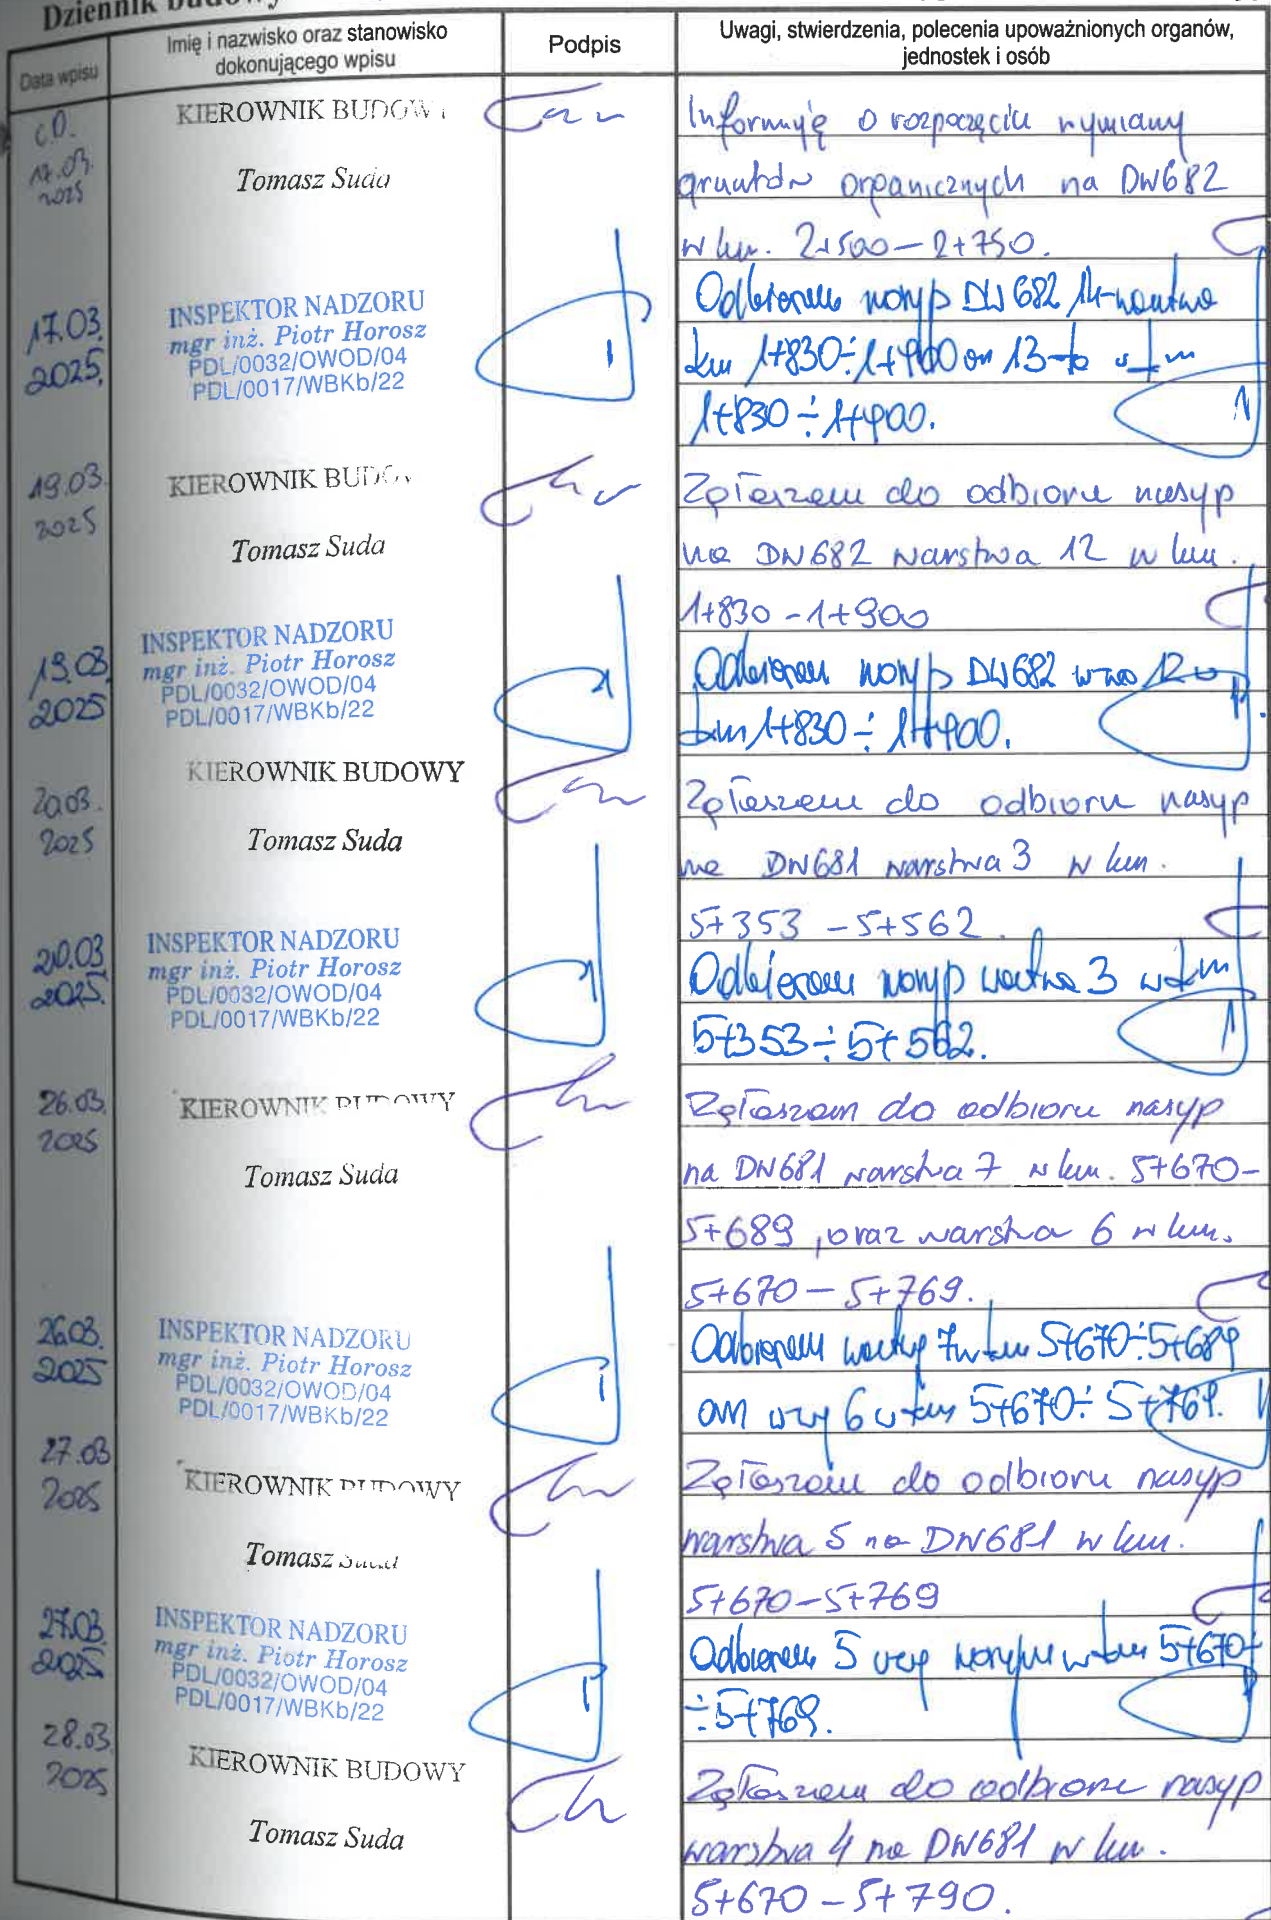 Dziennik budowy
Data wpisu
Imię i nazwisko oraz stanowisko
dokonującego wpisu
Podpis
Uwagi, stwierdzenia, polecenia upoważnionych organów,
jednostek i osób
c.D.
17.03.
2025
KIEROWNIK BUDOWY
Tomasz Suda
Informuję o rozpoczęciu wymiany
gruntów organicznych na DW682
w km. 2+500 - 2+750.
17.03.
2025.
INSPEKTOR NADZORU
mgr inż. Piotr Horosz
PDL/0032/OWOD/04
PDL/0017/WBKb/22
Odbieram nasyp DW 682 14-warstwa
km 1+830÷1+900 13-
1+830÷1+900.
19.03.
2025
KIEROWNIK BUDOW
Tomasz Suda
Zgłaszam do odbioru nasyp
na DW682 warstwa 12 w km.
1+830 - 1+900
19.03
2025
INSPEKTOR NADZORU
mgr inż. Piotr Horosz
PDL/0032/OWOD/04
PDL/0017/WBKb/22
Odbieram nasyp DW682 12 w
km 1+830÷1+900.
20.03.
2025
KIEROWNIK BUDOWY
Tomasz Suda
Zgłaszam do odbioru nasyp
na DW681 warstwa 3 w km.
5+353 - 5+562.
20.03
2025.
INSPEKTOR NADZORU
mgr inż. Piotr Horosz
PDL/0032/OWOD/04
PDL/0017/WBKb/22
Odbieram nasyp warstwa 3 w km
5+353÷5+562.
26.03.
2025
KIEROWNIK BUDOWY
Tomasz Suda
Zgłaszam do odbioru nasyp
na DW681 warstwa 7 w km. 5+670-
5+689, oraz warstwa 6 w km.
5+670 - 5+769.
26.03.
2025
INSPEKTOR NADZORU
mgr inż. Piotr Horosz
PDL/0032/OWOD/04
PDL/0017/WBKb/22
Odbieram warstwę 7 w km 5+670÷5+689
6 w km 5+670÷5+769.
27.03
2025
KIEROWNIK BUDOWY
Tomasz Suda
Zgłaszam do odbioru nasyp
warstwa 5 na DW681 w km.
5+670-5+769
27.03.
2025
INSPEKTOR NADZORU
mgr inż. Piotr Horosz
PDL/0032/OWOD/04
PDL/0017/WBKb/22
Odbieram 5 nasypu w km 5+670÷
÷5+769.
28.03.
2025
KIEROWNIK BUDOWY
Tomasz Suda
Zgłaszam do odbioru nasyp
warstwa 4 na DW681 w km.
5+670 - 5+790.